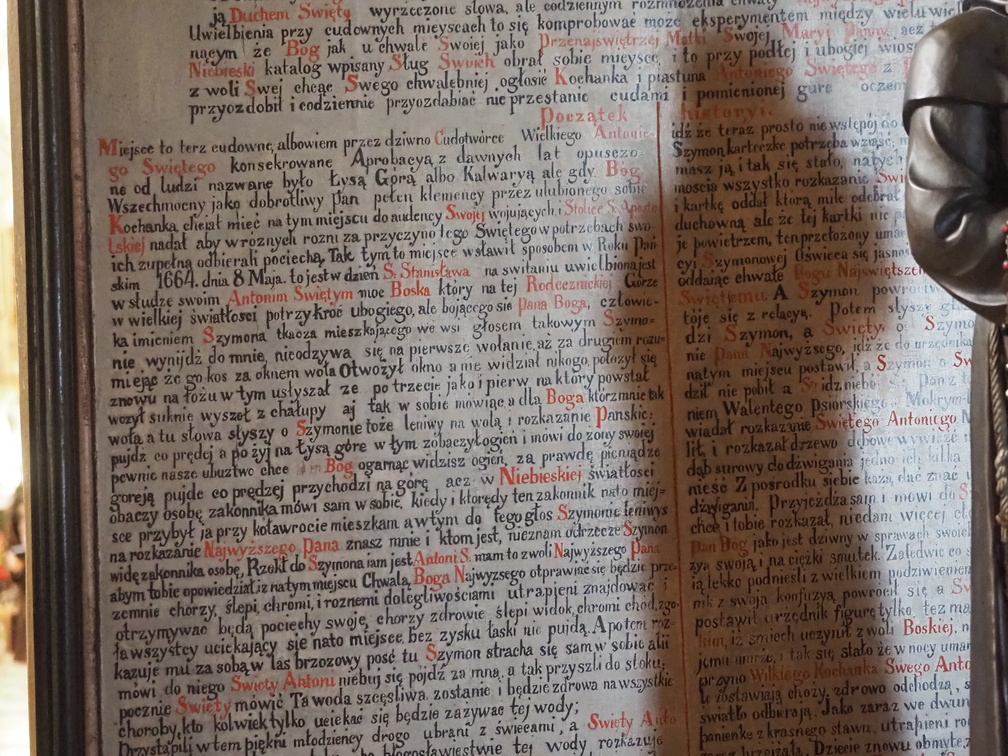 ją Duchem Swięty wyrzeczone słowa, ale codziennym rozmnożenia chwały
Uwielbienia przy cudownych mieyscach to się komprobować może eksperymentem między wielu wiel
nącym że Bog jak u chwale Swoiej jako Przenajswiętrzej Matki Swojej Maryi Panny, aez
Niebieski katalog wpisany Sług Swoich obrał sobie miejsce, i to przy podłej i ubogiej wios
z woli Swej chcąc Swego chwalebniej ogłosić Kochanka i piastuna Antoniego Swiętego z
przyozdobił i codziennie przyozdabiać nie przestanie cudami i pomienionej gure oczem
Początek historyi.
Miejsce to terz cudowne, albowiem przez dziwno Cudotwórce Wielkiego Antonie-
go Swiętego konsekrowane Aprobacyą z dawnych lat opuszczo-
ne od ludzi nazwane było Łysą Górą albo Kalwaryą ale gdy Bog
Wszechmocny jako dobrotliwy Pan pełen klemencyi przez ulubionego sobie
Kochanka chciał mieć na tym miejscu do audencyi Swojej wojujących i Stolice S. Aposto
lskiej nadał aby w roznych rozni za przyczyno tego Swiętego w potrzebach swo-
ich zupełną odbierali pociechą, Tak tym to miejsce wsławił sposobem w Roku Pań
skim 1664. dnia 8 Maja. to jest w dzień S: Stanisława na switaniu uwielbiona jest
w słudze swoim Antonim Swiętym moc Boska który na tej Rodecznickiej Górze
w wielkiej światłości potrzykroć ubogiego, ale bojącego się Pana Boga, człowie-
ka imieniem Szymona tkacza mieszkającego we wsi głosem takowym Szymo-
nie wynijdź do mnie, nieodzywa się na pierwsze wołanie, aż za drugiem rozu-
miejąc że go kos za oknem woła Otwozył okno a nie widział nikogo, położył się
znowu na łożu w tym usłyszał ze po trzecie jako i pierw na który powstał
wozył suknie wyszoł z chałupy aj tak w sobie mówiąc a dla Boga ktorz mnie tak
woła a tu słowa słyszy o Szymonie toże leniwy na wolą i rozkazanie Panskie:
pujdz co prędzej a pożyj na łysą górę w tym zobaczył ogień i mowi do żony swojej
pewnie nasze ubuztwo chce Bog ogarnąć widzisz ogień, za prawdę pieniądze
goreją pujde co prędzej przychodzi na górę acz w Niebieskiej światłości
obaczy osobę zakonnika mówi sam w sobie, kiedy i ktorędy ten zakonnik na to miej-
sce przybył ja przy kołowrocie mieszkam a w tym do tego głos Szymonie leniwyś
na rozkazanie Najwyzszego Pana znasz mnie i ktom jest, nieznam odrzecze Szymon
widzę zakonnika osobę, Rzekł do Szymona iam jest Antoni S. mam to z woli Najwyższego Pana
abym tobie opowiedział iz na tym miejscu Chwała Boga Najwyzsego otprawiać się będzie prze-
zemnie chorzy, ślepi, chromi, i roznemi dolegliwościami utrapieni znajdować i
otrzymywać będą pociechy swoję, chorzy zdrowie ślepi widok, chromi chod, zgo-
ła wszystcy uciekający się na to miejsce, bez zysku łaski nie pujdą. A potem roz-
kazuje mu za sobą w las brzozowy posć tu Szymon stracha się sam w sobie ali
mówi do niego Swięty Antoni niebuj się pojdź za mną, a tak przyszli do stoku;
pocznie Swięty mówić Ta woda szczęśliwa zostanie i będzie zdrowa na wszystkie
choroby, kto kolwiek tylko uciekać się będzie zazywać tej wody;
Przystąpili w tem piękni młodziency drogo ubrani z świecami, a Swięty Anto
błogosławieństwie tej wody, rozkazuje
idź że teraz prosto nie wstępój do
Szymon karteczke potrzęba wziąść, m
masz ją i tak się stało, natych
mościa wszystko rozkazanie Swi
i kartkę oddał ktorą mile odebrał
duchowną ale że tej kartki nie
je powietrzem, ten przełozony umar
cyi Szymonowej Oświeca się jasnos
oddając chwałe Bogu Najswiętszem
Swiętemu A Szymon powrociw
toje się z relacyą. Potem słysze gł
dzi Szymon, a Swięty o: Szymo
nie Pana Najwyższego, idź ze do urzędnika
na tym miejscu postawił, a Szymon o Sw
dził nie pobił a
niem Walentego Psiorskiego
wiadał rozkazanie Swiętego Antoniego
lit, i rozkazał drzewo dębowe wywieźć
dąb surowy do dzwigania jedno ich
nieść Z pośrodku siebie każą, dać znać
dzwigania. Przyjezdza sam i mowi do S
chce i tobie rozkazał, niedam więcej
Pan Bog jako jest dziwny w sprawach swoich
zya swoją, i na ciężki smutek. Zaledwie co
ją, lekko podniesli z wielkiem podziwieniem
nik z swoją konfuzyą powrocił się a Sw
postawił urzędnik figurę tylko, też ma
kim, iż śmiech uczynił z woli Boskiej,
jemu marzę, i tak się stało że w nocy umar
przyno Wilkiego Kochanka Swego Anto
le zostawiają chozy, zdrowo odchodzą, s
światło odbierają. Jako zaraz we dwun
par z krasnego stawu, utrapieni ro
Dziecie znowu obmyte